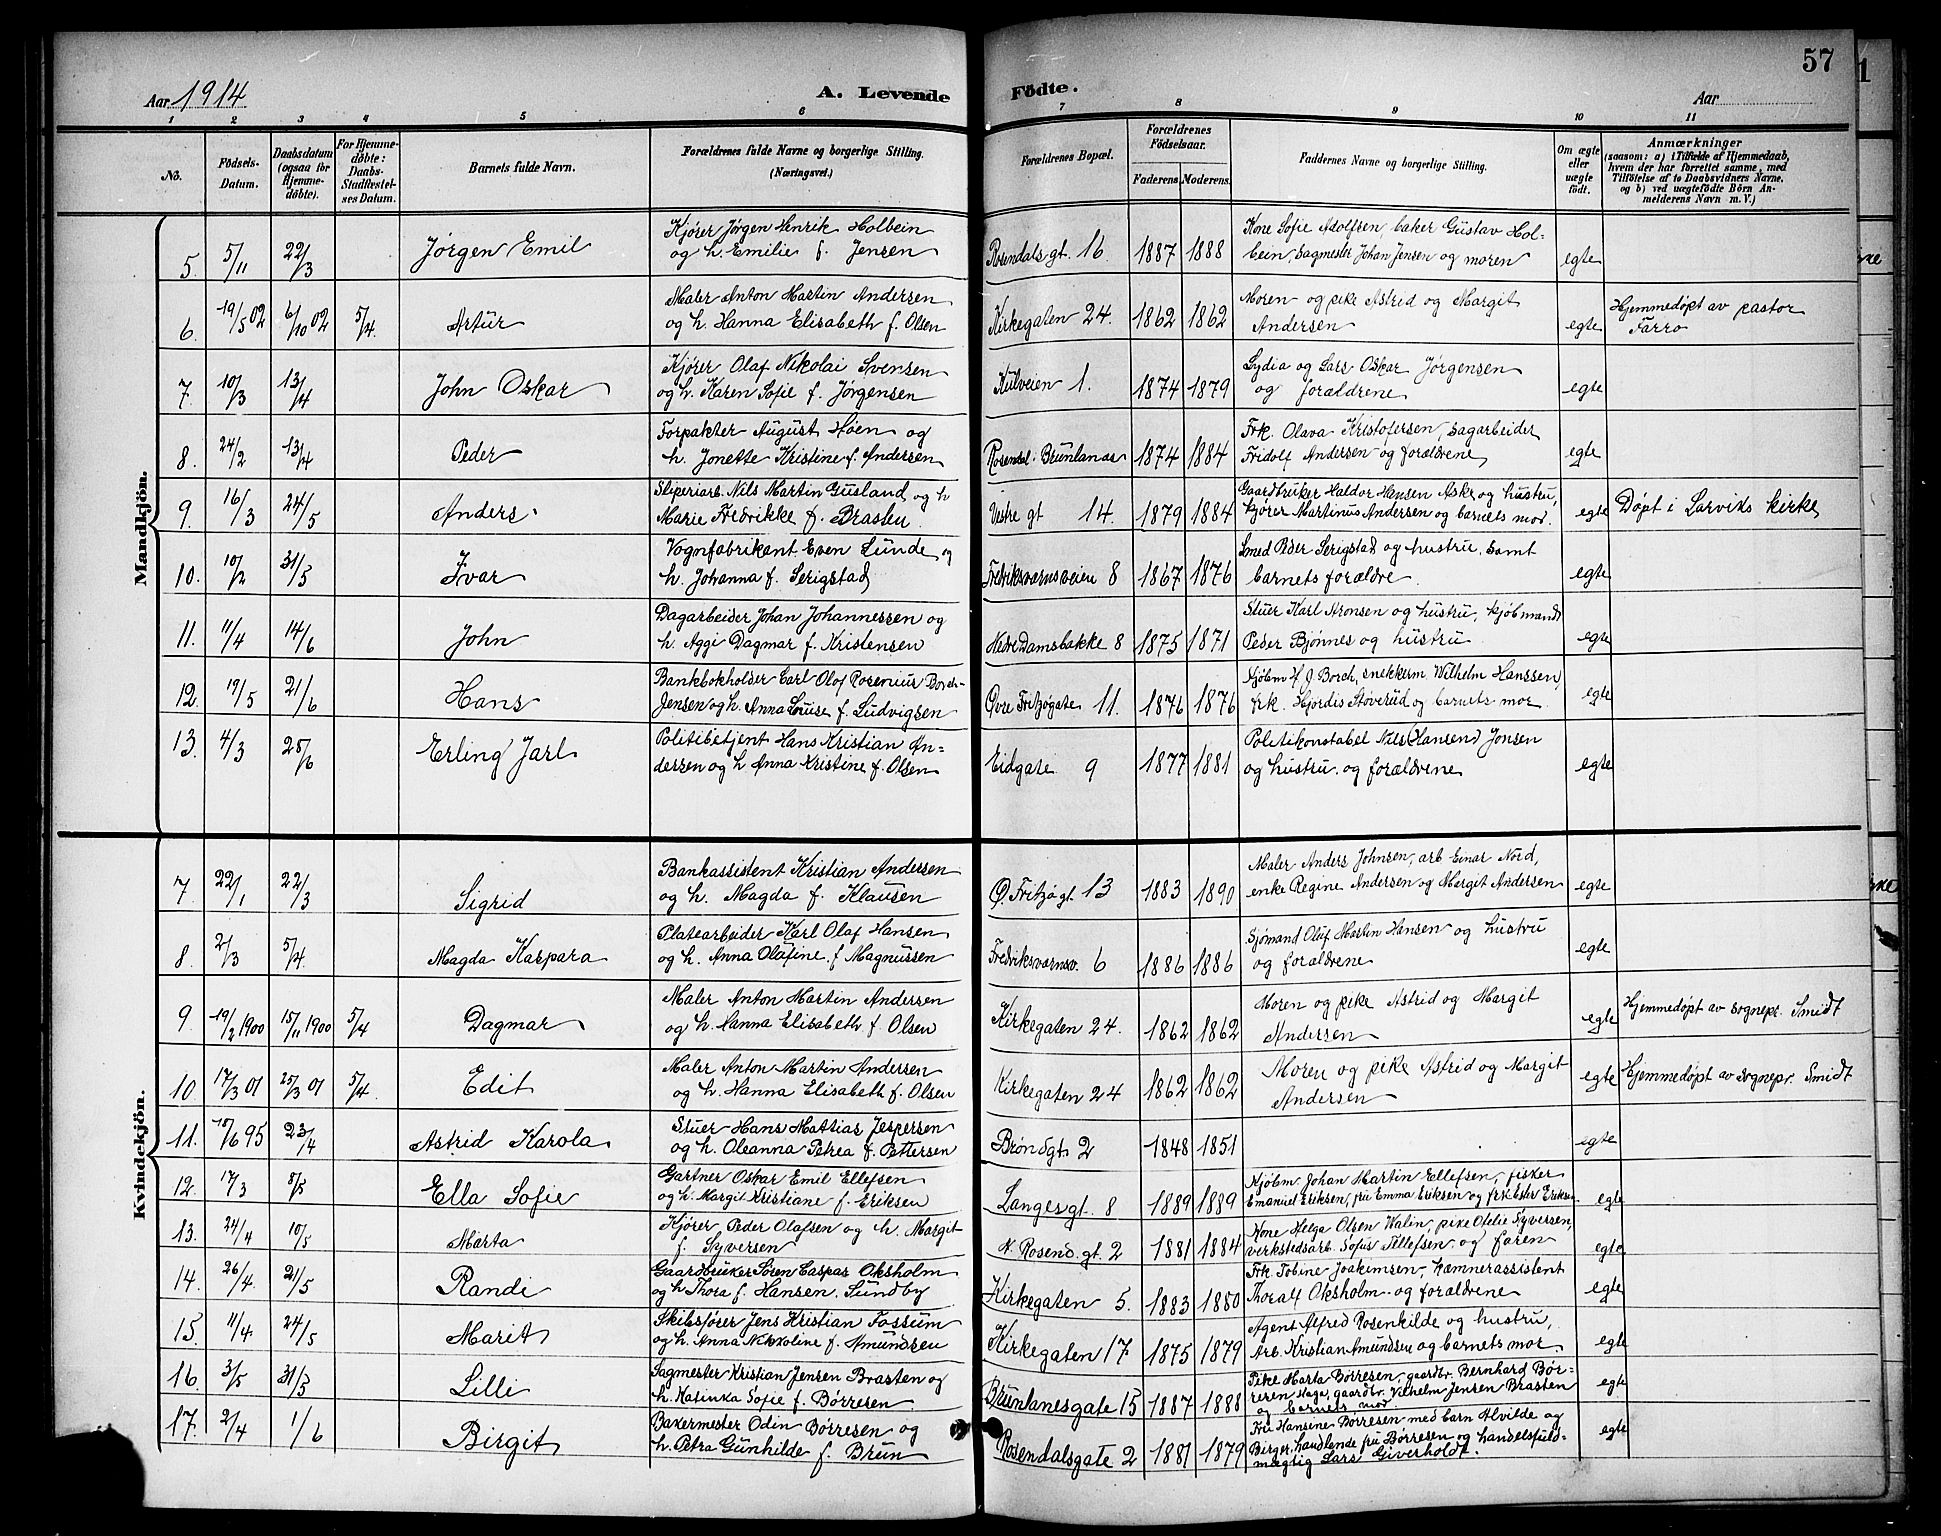 57
Aar 1914 A. Levende Fødte. Aar
1 2 3 4 5 6 7 8 9 10 11
No. Fødsels-Datum. Daabsdatum (ogsaa for Hjemmedøbte). For Hjemmedøbte: Daabs-Stadfæstelses Datum. Barnets fulde Navn. Forældrenes fulde Navne og borgerlige Stilling. (Næringsvei.) Forældrenes Bopæl. Forældrenes Fødselsaar. Faderens. Moderens. Faddernes Navne og borgerlige Stilling. Om ægte eller uægte født. Anmærkninger (saasom: a) i Tilfælde af Hjemmedaab, hvem der har forrettet samme, med Tilføielse af to Daabsvidners Navne, og b) ved uægtefødte Børn Anmelderens Navn m. V.)
Mandkjön.
5. 5/11 22/3 Jørgen Emil Kjører Jørgen Henrik Holbein Kone Sofie Adolfsen, baker Gustav Hol-
og h. Emilie f. Jensen Rosendalsgt. 16 1887 1888 bein, Sagmester Johan Jensen og moren egte
6. 19/5 02 6/10 02 5/4. Artur Maler Anton Martin Andersen Moren og pike Astrid og Margit Hjemmedøpt av pastor
og h. Hanna Elisabeth f. Olsen Kirkegaten 24. 1862 1862 Andersen egte Farro
7. 10/3 13/4 John Oskar Kjører Olaf Nikolai Svensen Lydia og Lars Oskar Jørgensen
og h. Karen Sofie f. Jørgensen Kulveien 1. 1874 1879 og forældrene egte
8. 24/2 13/4 Peder Forpakter August Høen og Frk. Olava Kristofersen, sagarbeider
h. Jonette Kristine f. Andersen Rosendal. Brunlanæs 1874 1884 Fridolf Andersen og forældrene egte
9. 16/3 24/5 Anders Sliperiarb. Nils Martin Gusland og h Gaardbruker Haldor Hansen Aske og hustru,
Marie Fredrikke f. Braslu Vestre gt 14. 1879 1884 kjører Martinus Andersen og barnets mor. egte Døpt i Larviks kirke
10. 10/2 31/5 Ivar Vognfabrikant Even Lunde og Smed Peder Serigstad og hustru. Samt
h. Johanna f. Serigstad Fredriksværnsveien 8 1867 1876 barnets forældre. egte
11. 11/4 14/6 John Dagarbeider Johan Johannessen og Stuer Karl Aronsen og hustru, kjøbmand
h. Aggi Dagmar f. Kristensen Nedre Damsbakke 8 1875 1871 Peder Bjønnes og hustru egte
12. 19/5 21/6 Hans Bankbokholder Carl Olof Rosenius Borch- Kjøbm H. J. Borch, snekkerm. Wilhelm Hanssen
Jensen og h. Anna Louise f. Ludvigsen Øvre Fritzøgate 11. 1876 1876 frk. Hjørdis Stoverud og barnets mor egte
13. 4/3 28/6 Erling Jarl Politibetjent Hans Kristian An- Politikonstabel Nils (Hansen) Jonsen
dersen og h Anna Kristine f. Olsen Eidgate 9 1877 1881 og hustru. og forældrene egte
Kvindekjön.
7. 22/1 22/3 Sigrid Bankassistent Kristian Andersen Maler Anders Johnsen, arb Einar Nord,
og h. Magda f. Klausen Ø. Fritzøgt. 13 1883 1890 enke Regine Andersen og Margit Andersen egte
8. 2/3 5/4. Magda Kaspara Platearbeider Karl Olaf Hansen Sjømand Oluf Martin Hansen og hustru
og h. Anna Olafine. f Magnussen Fredriksværnsv. 6 1886 1886 og forældrene egte
9. 19/2 1900 15/11 1900 5/4 Dagmar Maler Anton Martin Andersen Moren og pike Astrid og Margit Hjemmedøpt av sognepr. Smidt
og h. Hanna Elisabeth f. Olsen Kirkegaten 24. 1862 1862 Andersen egte
10. 17/3 01 25/3 01 5/4. Edit Maler Anton Martin Andersen Moren og pike Astrid og Margit Hjemmedøpt av sognepr. Smidt
og h. Hanna Elisabeth f. Olsen Kirkegaten 24 1862 1862 Andersen egte
11. /6 95 23/4 Astrid Karola Stuer Hans Mattias Jespersen
og h. Oleanna Petrea f. Pettersen Brøndgt. 2 1848 1851 egte
12. 17/3 8/5 Ella Sofie Gartner Oskar Emil Ellefsen Kjøbm Johan Martin Ellefsen, fisker
og h. Margit Kristiane f. Eriksen Langesgt. 8 1889 1889 Emanuel Eriksen, fru Emma Eriksen og frk Ester Eriksen egte
13. 24/4 10/5 Marta Kjører Peder Olafsen og h. Margit Kone Helga Olsen Walin, pike Otelie Syversen,
f. Syversen N. Rosend. gt. 2 1881 1884 verkstedsarb. Sofus Tellefsen. og faren egte
14. 26/4. 21/5 Randi Gaardbruker Søren Caspar Oksholm Frk Tobine Joakimsen, kæmnerassistent
og h Thora f. Hansen. Sundby Kirkegaten 5. 1883 1880 Thoralf Oksholm og forældrene egte
15. 11/4 24/5 Marit Skibsfører Jens Kristian Fossum Agent Alfred Rosenkilde og hustru,
og h. Anna Nikoline f. Amundsen Kirkegaten 17 1875 1879 Arb. Kristian Amundsen og barnets mor egte
16. 3/5 31/5 Lilli Sagmester Kristian Jensen Brasten og Pike Marta Børresen, gaardbr. Bernhard Bør-
h. Katinka Sofie f. Børresen Brunlanesgate 15 1887 1888 resen Hage, gaardbr. Vilhelm Jensen Brasten egte
og barnets mor
17. 2/4 1/6 Birgit Bakermester Odin Børresen og Fru Hansine Børresen med barn Alvilde og
h. Petra Gunhilde f. Brun Rosendalsgate 2 1881 1879 Birger, handlende fru Børresen og handelsfuld- egte
mægtig Lars Giverholdt.